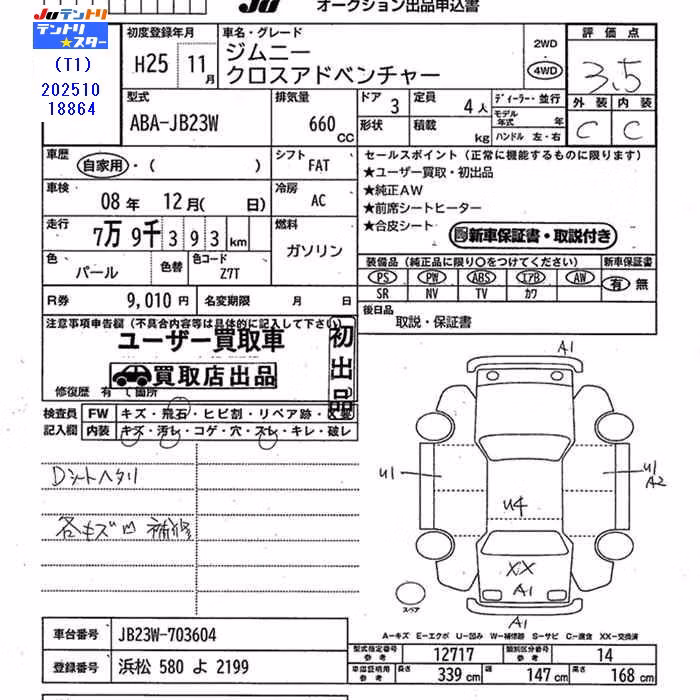 JUテントリ
テントリ★スター
(T1)
202510
18864
JU
オークション出品申込書
初度登録年月
H25 11月
車名・グレード
ジムニー
クロスアドベンチャー
2WD
4WD
評価点
3.5
外装 内装
C C
型式
ABA-JB23W
排気量
660 CC
ドア 3
形状
定員 4人
積載 kg
ディーラー・並行
モデル年式 年
ハンドル 左・右
車歴
自家用・( )
シフト FAT
車検
08年 12月( 日)
冷房 AC
走行
7万 9千 3 9 3 km
燃料
ガソリン
色 パール
色替
色コード Z7T
R券 9,010円
名変期限 月 日
セールスポイント(正常に機能するものに限ります)
★ユーザー買取・初出品
★純正AW
★前席シートヒーター
★合皮シート
新車保証書・取説付き
装備品(純正品に限り○をつけてください)
新車保証書
PS PW ABS エアB AW
有 無
SR NV TV カワ
後日品
取説・保証書
注意事項申告欄(不具合内容等は具体的に記入して下さい)
ユーザー買取車
買取店出品
初出品
修復歴 有 て箇所
検査員 FW キズ・飛石・ヒビ割・リペア跡・X要
記入欄 内装 キズ・汚レ・コゲ・穴・スレ・キレ・破レ
Dシートヘタリ
各キズ凹 補修
A1
U1
U4
U1
A2
XX
A1
A1
スペア
A-キズ E-エクボ U-凹み W-補修跡 S-サビ C-腐食 XX-交換済
車台番号 JB23W-703604
登録番号 浜松 580 よ 2199
型式指定番号 参考 12717
類別区分番号 参考 14
車庫証明用 参考 長さ 339 cm 幅 147 cm 高さ 168 cm